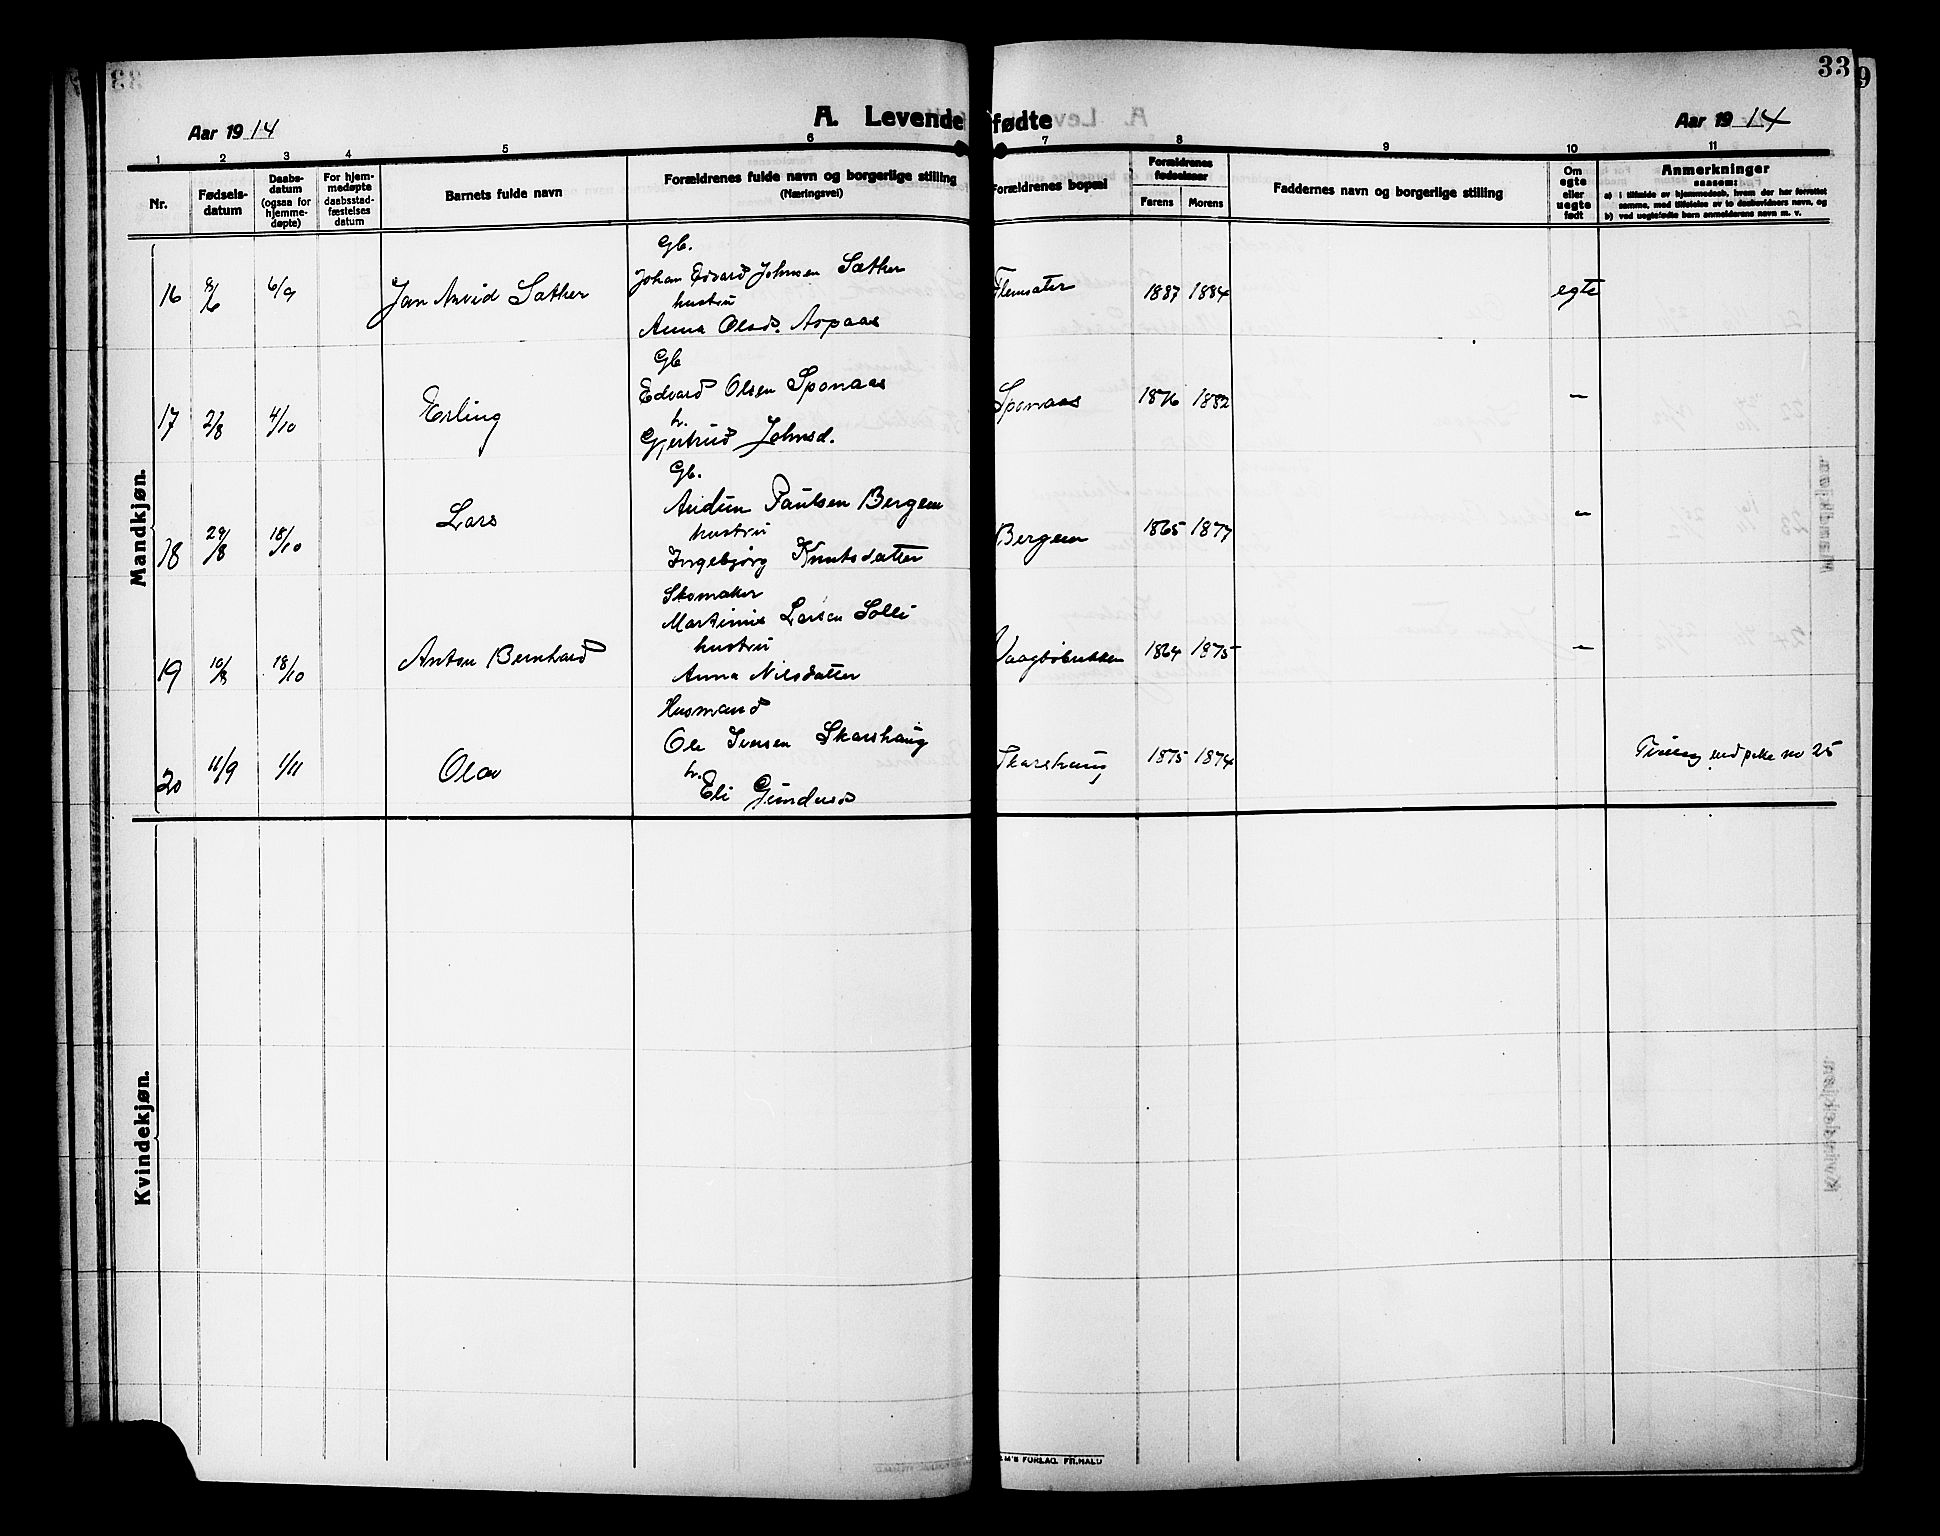 33
9
A. Levendefødte
Aar 1914
Aar 1914
1 2 3 4 5 6 7 8 9 10 11
Nr.
Fødsels-
datum
Daabs-
datum
(ogsaa for
hjemme-
døpte)
For hjem-
medøpte
daabsstad-
fæstelses
datum
Barnets fulde navn
Forældrenes fulde navn og borgerlige stilling
(Næringsvei)
Forældrenes bopæl
Forældrenes
fødselsaar
Farens Morens
Faddernes navn og borgerlige stilling
Om
egte
eller
uegte
født
Anmerkninger
saasom:
a) i tilfælde av hjemmedaab, hvem der har forrettet
samme, med tilføielse av to daabsvidners navn, og
b) ved uegtefødte barn anmelderens navn m. v.
Mandkjøn.
Gb.
Johan Edvard Johnsen Sæther
16 8/6 6/9 Jan Arvid Sæther Flemsæter 1887 1884 egte
hustru
Anna Olsd. Aspaas
Gb
Edvard Olsen Sponaas
17 2/8 4/10 Erling Sponaas 1876 1882 -
h.
Gjertrud Johnsd.
Gb.
Audun Paulsen Bergem
18 29/8 18/10 Lars Bergem 1865 1877 -
hustru
Ingebjørg Knutsdatter
Skomaker
Martinus Larsen Solli
19 10/8 18/10 Anton Bernhard 1864 1875 -
hustru
Anna Nilsdatter
Husmand
Ole Iversen Skarshaug
20 11/9 1/11 Olav Skarshaug 1875 1874 Tvilling med pike no 25
h.
Eli Gundersd
Kvindekjøn.